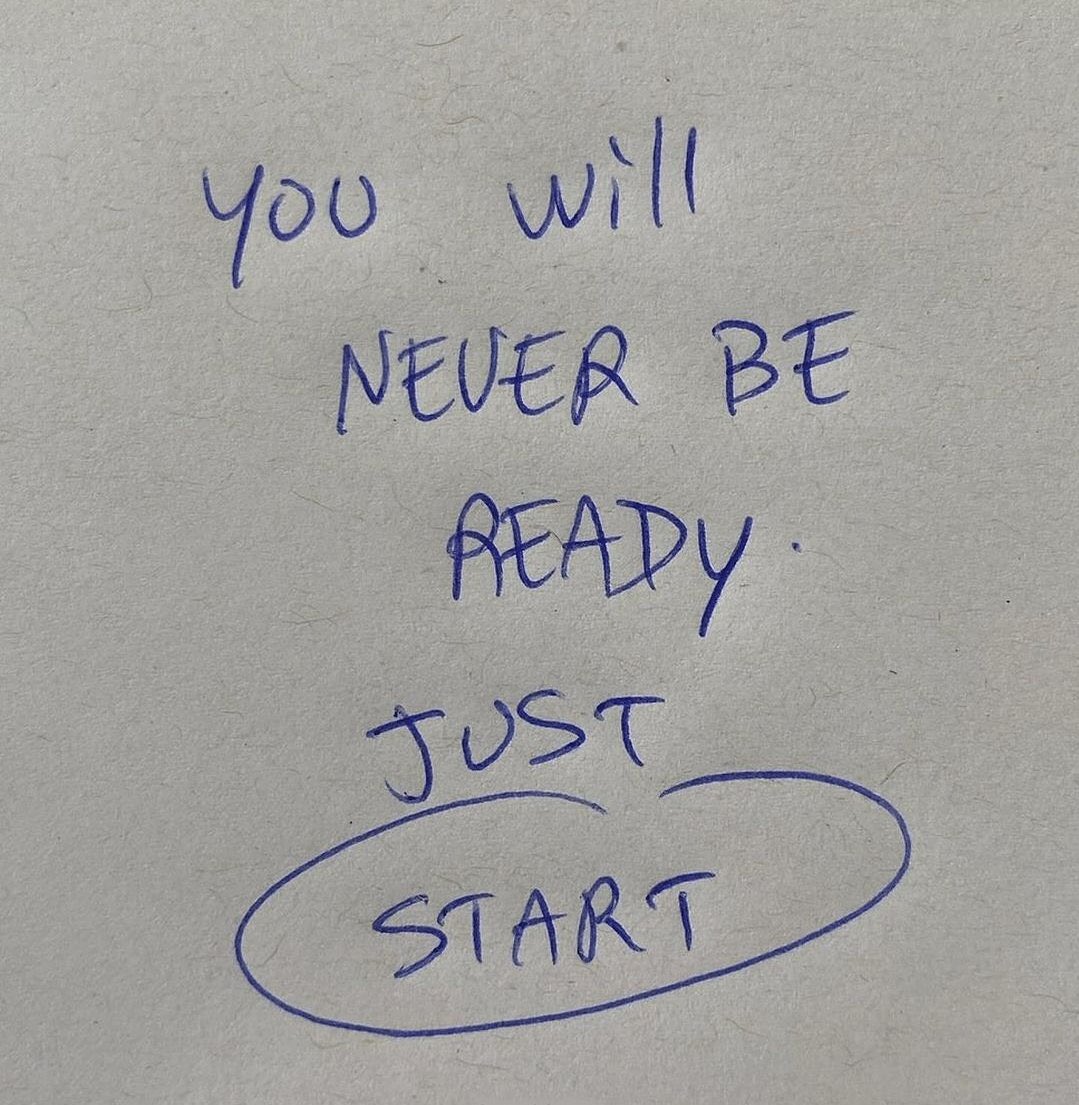 You will
NEVER BE
READY.
JUST
START